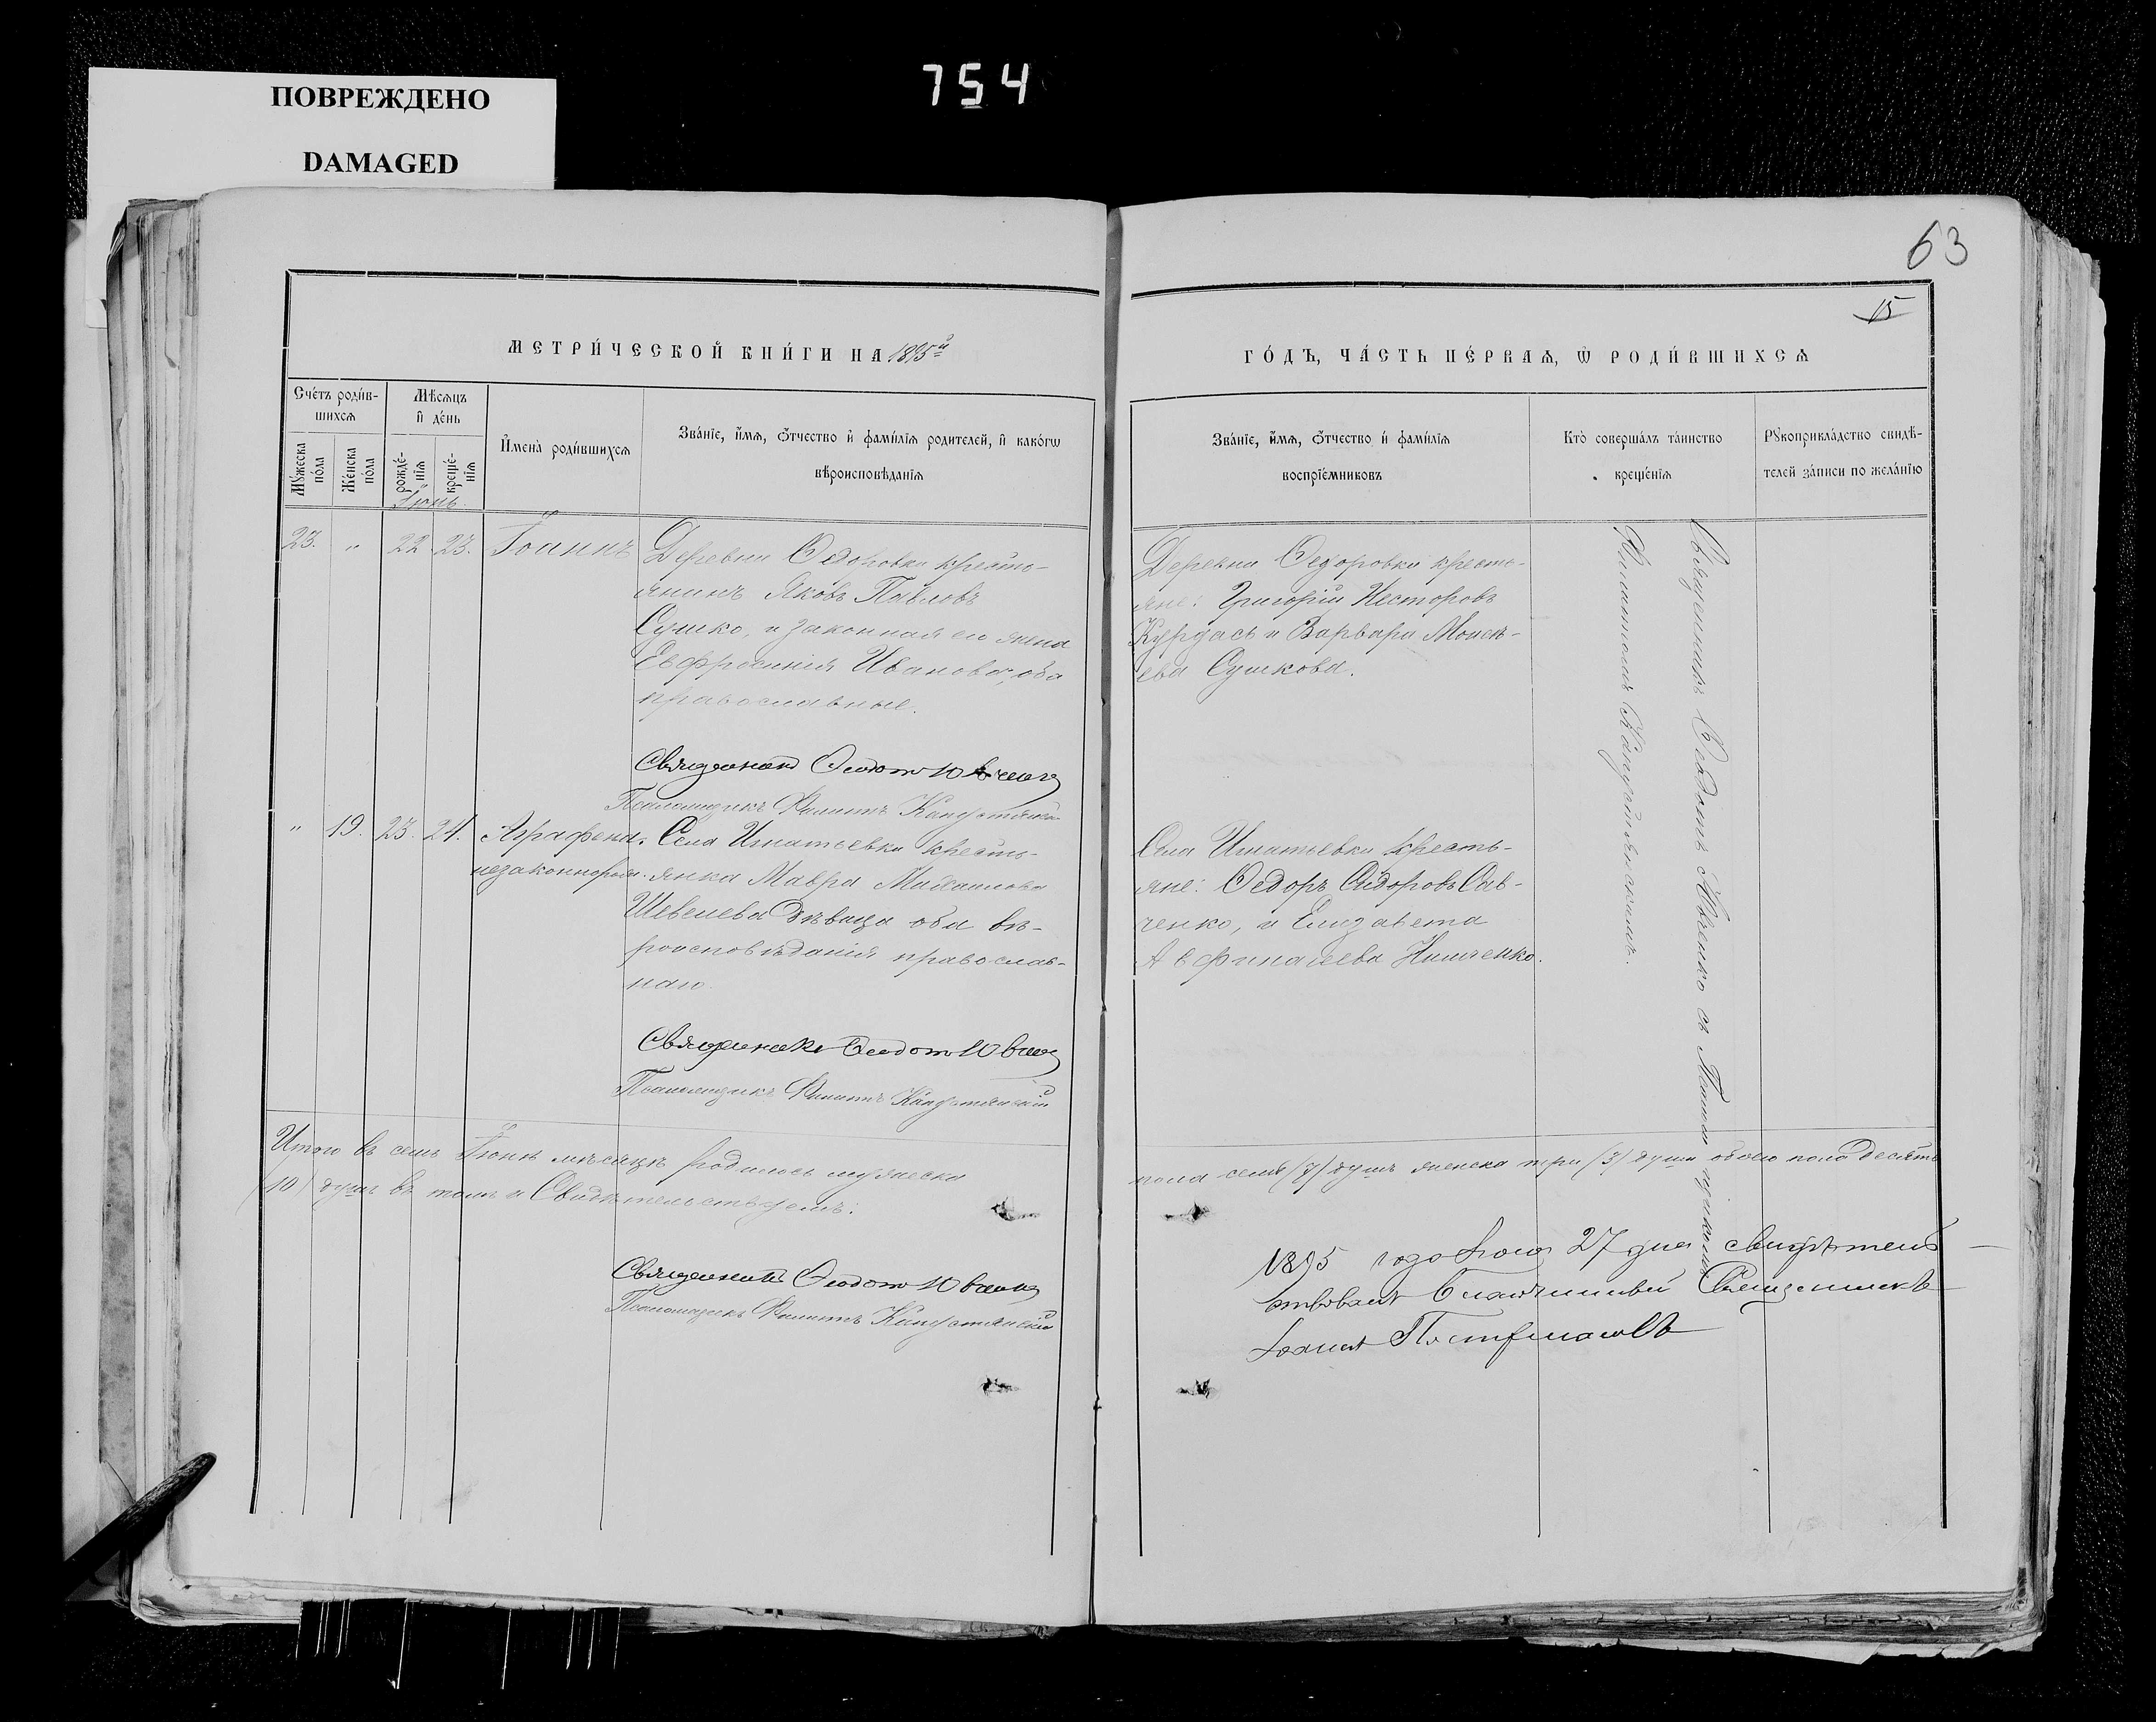 754
ПОВРЕЖДЕНО
DAMAGED
63
15
МЕТРИ́ЧЕСКОЙ КНИ́ГИ НА 1895й
ГО́ДЪ, ЧА́СТЬ ПЕ́РВАѦ, Ѿ РОДИ́ВШИХСѦ
Сче́тъ роди́в-
шихсѧ
Мѣ́сѧцъ
и҆ де́нь
Мꙋ́жеска по́ла
Же́нска по́ла
рожде́-
нїѧ
креще́-
нїѧ
И҆мена̀ роди́вшихсѧ
Зва́нїе, и҆́мѧ, ѻ҆́тчество и҆ фами́лїѧ родителей, и҆ како́гѡ
вѣроисповѣ́данїѧ
Зва́нїе, и҆́мѧ, ѻ҆́тчество и҆ фами́лїѧ
воспрїе́мниковъ
Кто̀ соверша́лъ та́инство
креще́нїѧ
Рꙋкоприкла́дство свидѣ́-
телей за́писи по жела́нїю
Іюнь.
23. " 22 23. Іоаннъ
Деревни Ѳедоровки кресть-
янинъ Яковъ Павловъ
Сушко, и законная его жена
Евфросинія Иванова, оба
православные.
Священникъ Ѳеодотъ
Псаломщикъ Филиппъ Капустянскій
Деревни Ѳедоровки кресть-
яне: Григорій Несторовъ
Курдасъ и Варвара Моисе-
ева Сушкова.
Священникъ Ѳеодотъ с Псаломщикомъ
Филиппомъ Капустянскимъ.
" 19. 23. 24. Аграфена,
незаконнорож.
Села Игнатьевки кресть-
янка Мавра Михаилова
Шевелева Дѣвица оба вѣ-
роисповѣданія православ-
наго
Священникъ Ѳеодотъ
Псаломщикъ Филиппъ Капустянскій
Села Игнатьевки кресть-
яне: Ѳедоръ Сидоровъ Сав-
ченко, и Елизавета
Нимченко.
Итого въ семъ Іюнѣ мѣсяцѣ родилось мужеска
пола семь (7) душъ женска три (3) души обоего пола десять
(10) душъ въ томъ и Свидѣтельствуемъ:
Священникъ Ѳеодотъ
Псаломщикъ Филиппъ Капустянскій
1895 года Іюля 27 дня свидѣтель-
ствовалъ Благочинный Священникъ
Іоаннъ